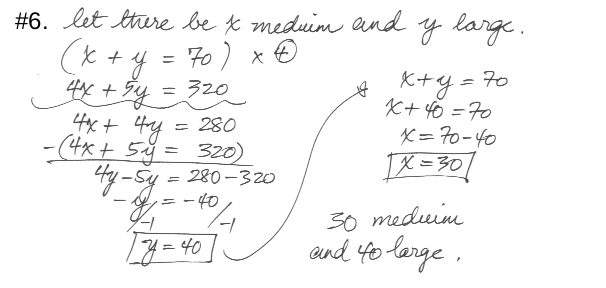 #6. let there be x medium and y large.
(x + y = 70) x ④
4x + 5y = 320
4x + 4y = 280
-(4x + 5y = 320)
4y - 5y = 280 - 320
-y = -40
/-1 /-1
y = 40
x + y = 70
x + 40 = 70
x = 70 - 40
x = 30
30 medium
and 40 large.